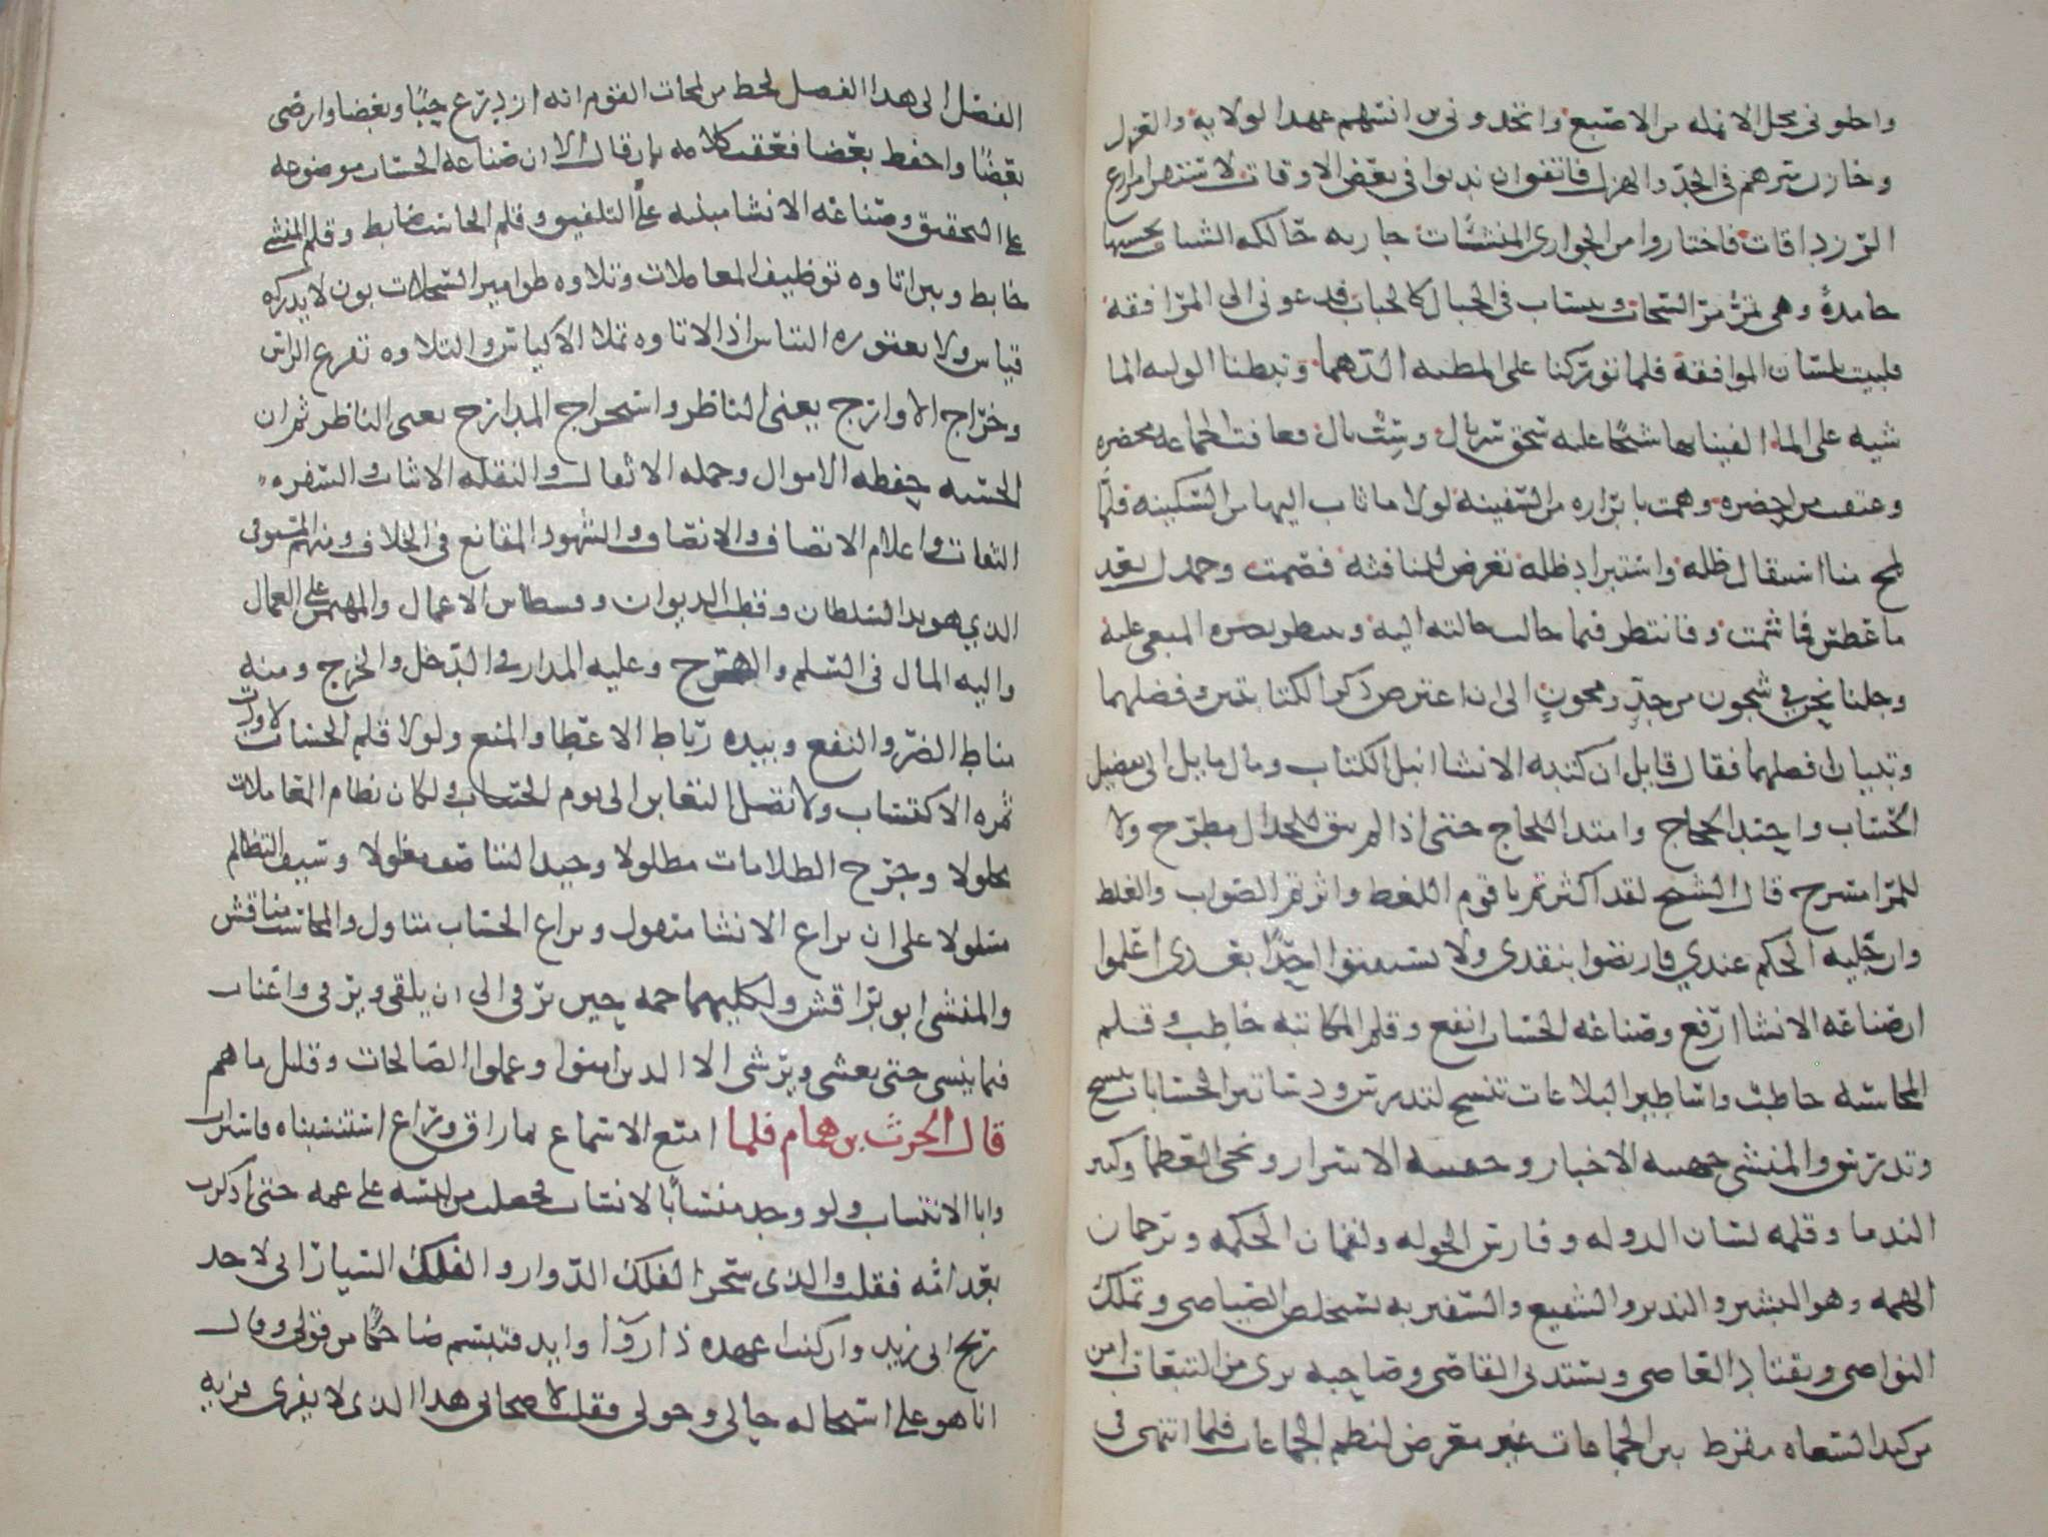 واحلوني محل الانملة من الاصبع واتخذوني ابن انسهم عند الولاية والعزل
وخازن سرهم في الجد والهزل فاتفق ان ندبوا في بعض الاوقات لاستقرا مزارع
الرزداقات فاختاروا من الجواري المنشئات جارية حالكة الشيات تحسبها
جامدة وهي تمر مر السحاب وتنساب في الحباب كالحباب فدعوني الى المرافقة
فلبيت بلسان الموافقة فلما توركنا على المطية الدهما وتبطنا الولية الما
شية على الماء الفينا بها شيخا عليه سحق سربال وسب بال فعافت الجماعة محضره
وعنفت من احضره وهمت بابرازه من السفينة لولا ما ثاب اليها من السكينة فلما
لمح منا استثقال ظله واستبراد طله تعرض للمنافثة فصمت وحمدل بعد
ما عطس فما شمت فانتظر فيما حالت حالته اليه وينتظر نصره المبغي عليه
وجلنا نحن في شجون من جد ومجون الى ان اعترض ذكر الكتابتين وفضلهما
وتبيان افضلهما فقال قايل ان كتبة الانشا انبل الكتاب ومال مايل الى تفضيل
الحساب واحتد الحجاج وامتد اللجاج حتى اذا لم يبق للجدال مطرح ولا
للمرا مسرح قال الشيخ لقد اكثرتم يا قوم اللغط واثرتم الصواب والغلط
وان جلية الحكم عندي فارتضوا بنقدي ولا تستفتوا احدا بعدي اعلموا
ان صناعة الانشا ارفع وصناعة الحساب انفع وقلم المكاتبة خاطب وقلم
المحاسبة حاطب واساطير البلاغات تنسخ لتدرس ودساتير الحسابات تنسخ
وتدرس والمنشي جهينة الاخبار وحقيبة الاسرار ونجي العظما وكبير
الندما وقلمه لسان الدولة وفارس الجولة ولقمان الحكمة وترجمان
الهمة وهو البشير والنذير والشفيع والسفير به تستخلص الصياصي وتملك
النواصي ويقتاد العاصي ويستدنى القاصي وصاحبه بري من التبعات امن
من كيد السعاة مقرظ بين الجماعات غير معرض لنظم الجماعات فلما انتهى في
الفصل الى هذا الفصل لحظ من لمحات القوم انه ازدرع حبا وبغضا وارضى
بعضا واحفظ بعضا فعقب كلامه بان قال الا ان صناعة الحساب موضوعة
على التحقيق وصناعة الانشا مبنية على التلفيق وقلم الحاسب ضابط وقلم المنشي
خابط وبين اتاوة توظيف المعاملات وتلاوة طوامير السجلات بون لا يدركه
قياس ولا يعتوره التباس اذ الاتاوة تملا الاكياس والتلاوة تفرع الراس
وخراج الاوارج يغني الناظر واستخراج المدارج يعني الناظر ثم ان
الحسبة حفظة الاموال وحملة الاثقال والنقلة الاثبات والسفرة
الثقات واعلام الانصاف والانتصاف والشهود المقانع في الخلاف ومنهم المستوفي
الذي هو يد السلطان وقطب الديوان وقسطاس الاعمال والمهيمن على العمال
واليه المال في السلم والهرج وعليه المدار في الدخل والخرج ومنه
مناط الضر والنفع وبيده رباط الاعطا والمنع ولولا قلم الحساب لاودت
ثمرة الاكتساب ولاتصل التغابن الى يوم الحساب ولكان نظام المعاملات
محلولا وجرح الظلامات مطلولا وجيد التناصف مغلولا وسيف التظالم
مسلولا على ان يراع الانشا متقول ويراع الحساب متاول والمحاسب مناقش
والمنشي ابو براقش ولكليهما حمة حين يرقى الى ان يلقى ويرقى واعنات
فيما ينسى حتى يغشى ويرشى الا الذين امنوا وعملوا الصالحات وقليل ما هم
قال الحرث بن همام فلما امتع الاسماع بما راق وراع استنسبناه فاستراب
وابا الانتساب ولو وجد منسابا لانساب فحصلت من لبسه على غمة حتى ادكرت
بعد امة فقلت والذي سخر الفلك الدوار والفلك السيار اني لاجد
ريح ابي زيد وان كنت اعهده ذا روا وايد فتبسم ضاحكا من قولي وقال
انا هو على استحالة حالي وحولي فقلت لاصحابي هذا الذي لا يفرى فريه